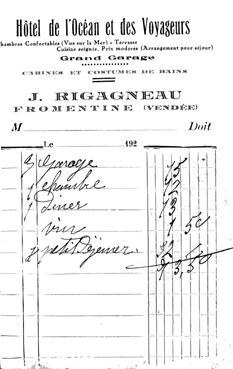 Hôtel de l'Océan et des Voyageurs
Chambres Confortables (Vue sur la Mer) - Terrasse
Cuisine soignée. Prix modérés (Arrangement pour séjour)
Grand Garage
CABINES ET COSTUMES DE BAINS
J. RIGAGNEAU
FROMENTINE (VENDÉE)
M Doit
Le 192
Garage
1 chambre
1 Diner
vin 50
petit Déjeuner
3,50